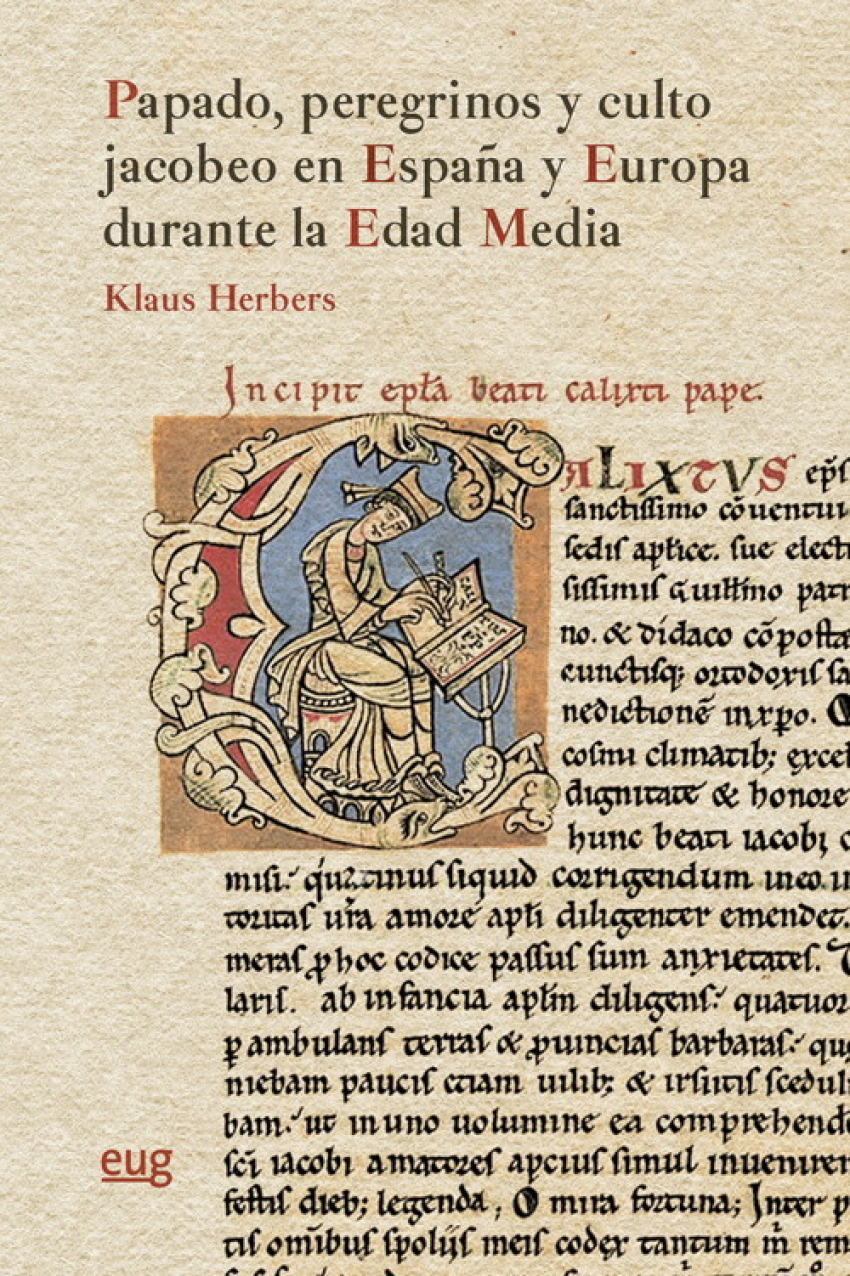 Papado, peregrinos y culto
jacobeo en España y Europa
durante la Edad Media
Klaus Herbers
Incipit epła beati calixti pape.
CALIXTVS ep̃s
sanctissimo cõuentui
sedis apłice. sue electi
sissimis Guiłłino patr
no. & didaco cõposta
cunctisq; ortodoxis sa
nedictionẽ inxp̃o.
cosmi climatib; excel
dignitate & honore
hunc beati iacobi c
misi. siquid corrigendum
toritas ur̃a amore apłi diligenter emendet.
meras ꝓ hoc codice passus sum anxietates.
laris. ab infancia apłm diligens. quatuor
ꝑambulans terras & ꝓuincias barbaras. que
niebam paucis etiam uilib; & irsutis scedul
bam. ut in uno uolumine ea comprehende
sc̃i iacobi amatores apcius simul inueniren
festis dieb; legenda, O mira fortuna; Inter p
tis om̃ibus spolijs meis codex tantum m̃ rem
eug